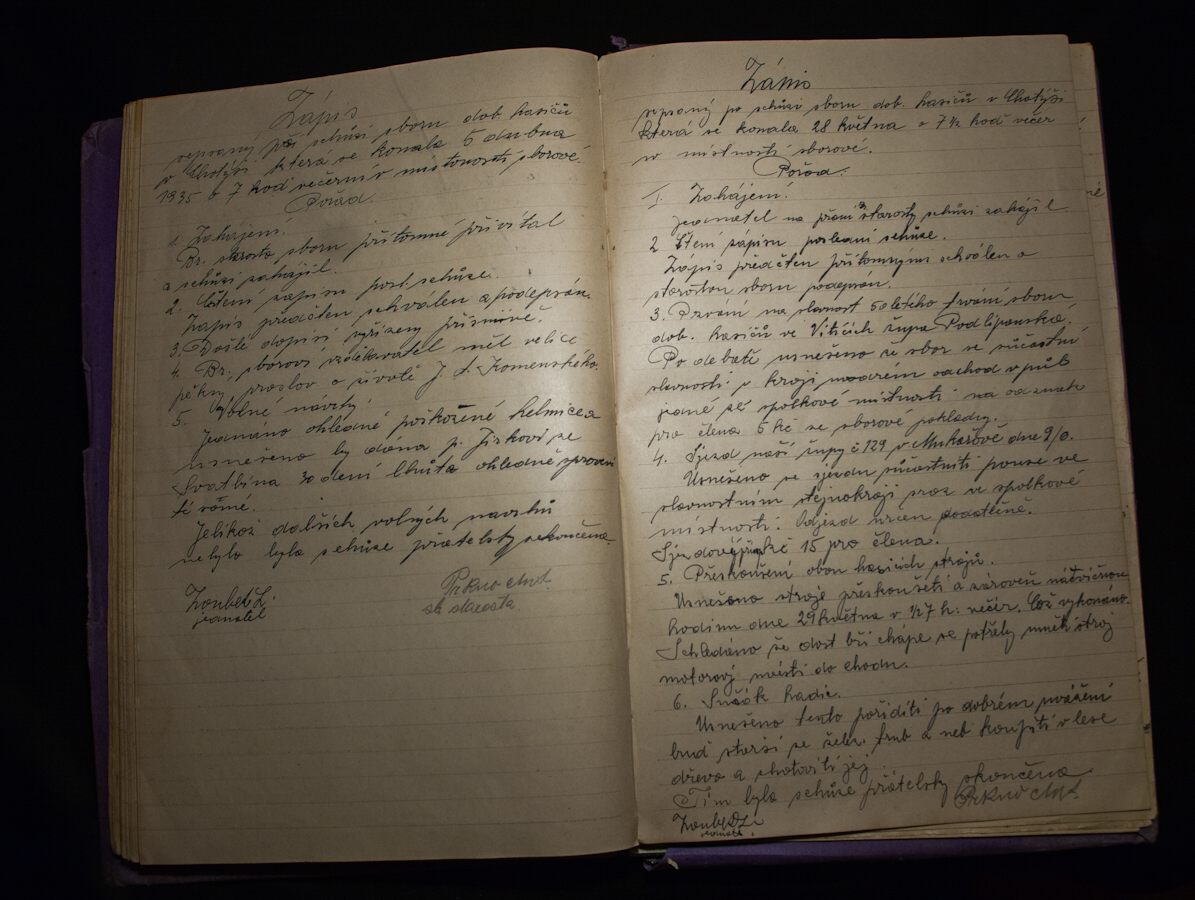 Zápis
sepsaný při schůzi sboru dob. hasičů
v Chotýši která se konala 5 dubna
1935 o 7 hod večerní v místnosti sborové.
Pořad.
1. Zahájení.
Br. starosta sboru přítomné přivítal
a schůzi zahájil.
2. Čtení zápisu posl. schůze.
Zápis předčten schválen a podepsán.
3. Došlé dopisi vyřízeny písmně.
4. Br. sborový vzdělavatel měl velice
pěkný proslov o životě J. A. Komenského.
5. Volné návrhy.
Jednáno ohledně poškozené helmice a
usnešeno by dána p. Jirkovi ze
Svatbína 30 dení lhůta ohledně
Jelikož dalších volných návrhů
nebylo byla schůze přátelsky skončena.
Zoubek L.
jednatel
Prkno
starosta
Zápis
sepsaný po schůzi sboru dob. hasičů v Chotýši
která se konala 28 května o 7½ hod večer
v místnosti sborové.
Pořad.
1. Zahájení.
Jednatel na přání starosty schůzi zahájil.
2 Čtení zápisu poslední schůze.
Zápis předčten přítomnými schválen a
starostou sboru podepsán.
3. Pozvání na slavnost 50 letého trvání sboru
dob. hasičů ve Viticích župa Podlipanská.
Po debatě usnešeno že sbor se súčastní
slavnosti v kroji modrém odchod v půl
jedné ze spolkové místnosti na odznak
pro člena 5 kč ze sborové pokladny.
4. Sjezd naší župy č 129 v Mukařově dne 9/6.
Usnešeno se sjezdu súčastniti pouze ve
slavnostním stejnokroji sraz ve spolkové
místnosti. Odjezd určen
Sjezdový kč 15 pro člena.
5. Přeskoušení obou hasicích strojů.
Usnešeno stroje přeskoušeti a zároveň nácvičnou
hodinu dne 29 května v ½7 h. večer. Což vykonáno.
Schledáno že dost bří chápe se potřeby uměti stroj
motorový uvésti do chodu.
6. Sušák hadic.
Usnešeno tento poříditi po dobrém uvážení
buď starší ze želez. trub a neb koupiti v lese
dřevo a zhotoviti jej.
Tím byla schůze přátelsky skončena.
Zoubek L.
jednatel
Prkno